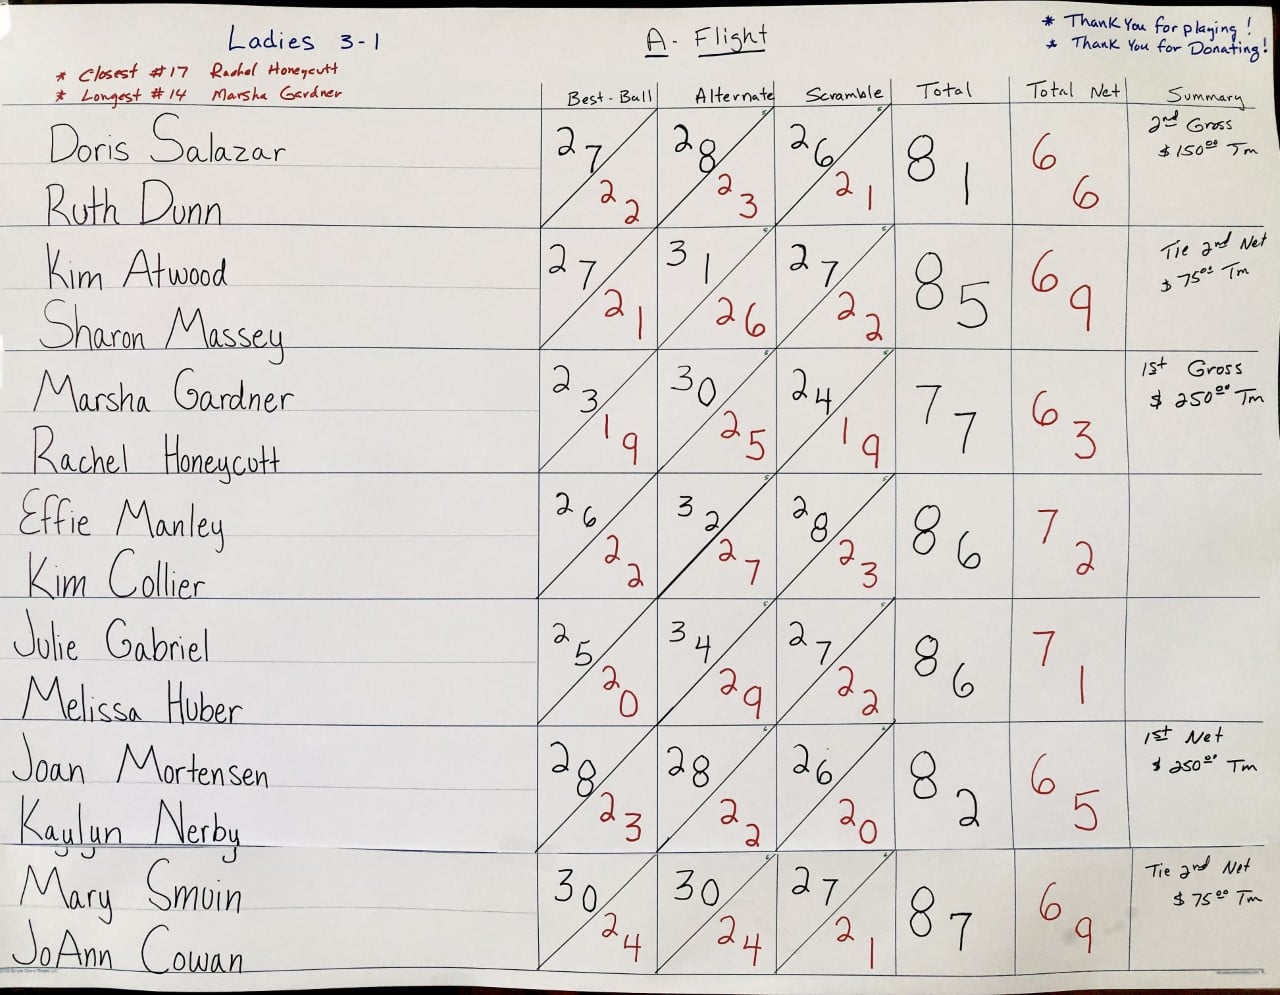 Ladies 3-1
A- Flight
* Thank You for playing!
* Thank You for Donating!
* Closest #17 Rachel Honeycutt
* Longest #14 Marsha Gardner
Best-Ball Alternate Scramble Total Total Net Summary
Doris Salazar 27 28 26 81 66 2nd Gross
Ruth Dunn 22 23 21 $150.00 Tm
Kim Atwood 27 31 27 85 69 Tie 2nd Net
Sharon Massey 21 26 22 $75.00 Tm
Marsha Gardner 23 30 24 77 63 1st Gross
Rachel Honeycutt 19 25 19 $250.00 Tm
Effie Manley 26 32 28 86 72
Kim Collier 22 27 23
Julie Gabriel 25 34 27 86 71
Melissa Huber 20 29 22
Joan Mortensen 28 28 26 82 65 1st Net
Kaylyn Nerby 23 22 20 $250.00 Tm
Mary Smuin 30 30 27 87 69 Tie 2nd Net
JoAnn Cowan 24 24 21 $75.00 Tm